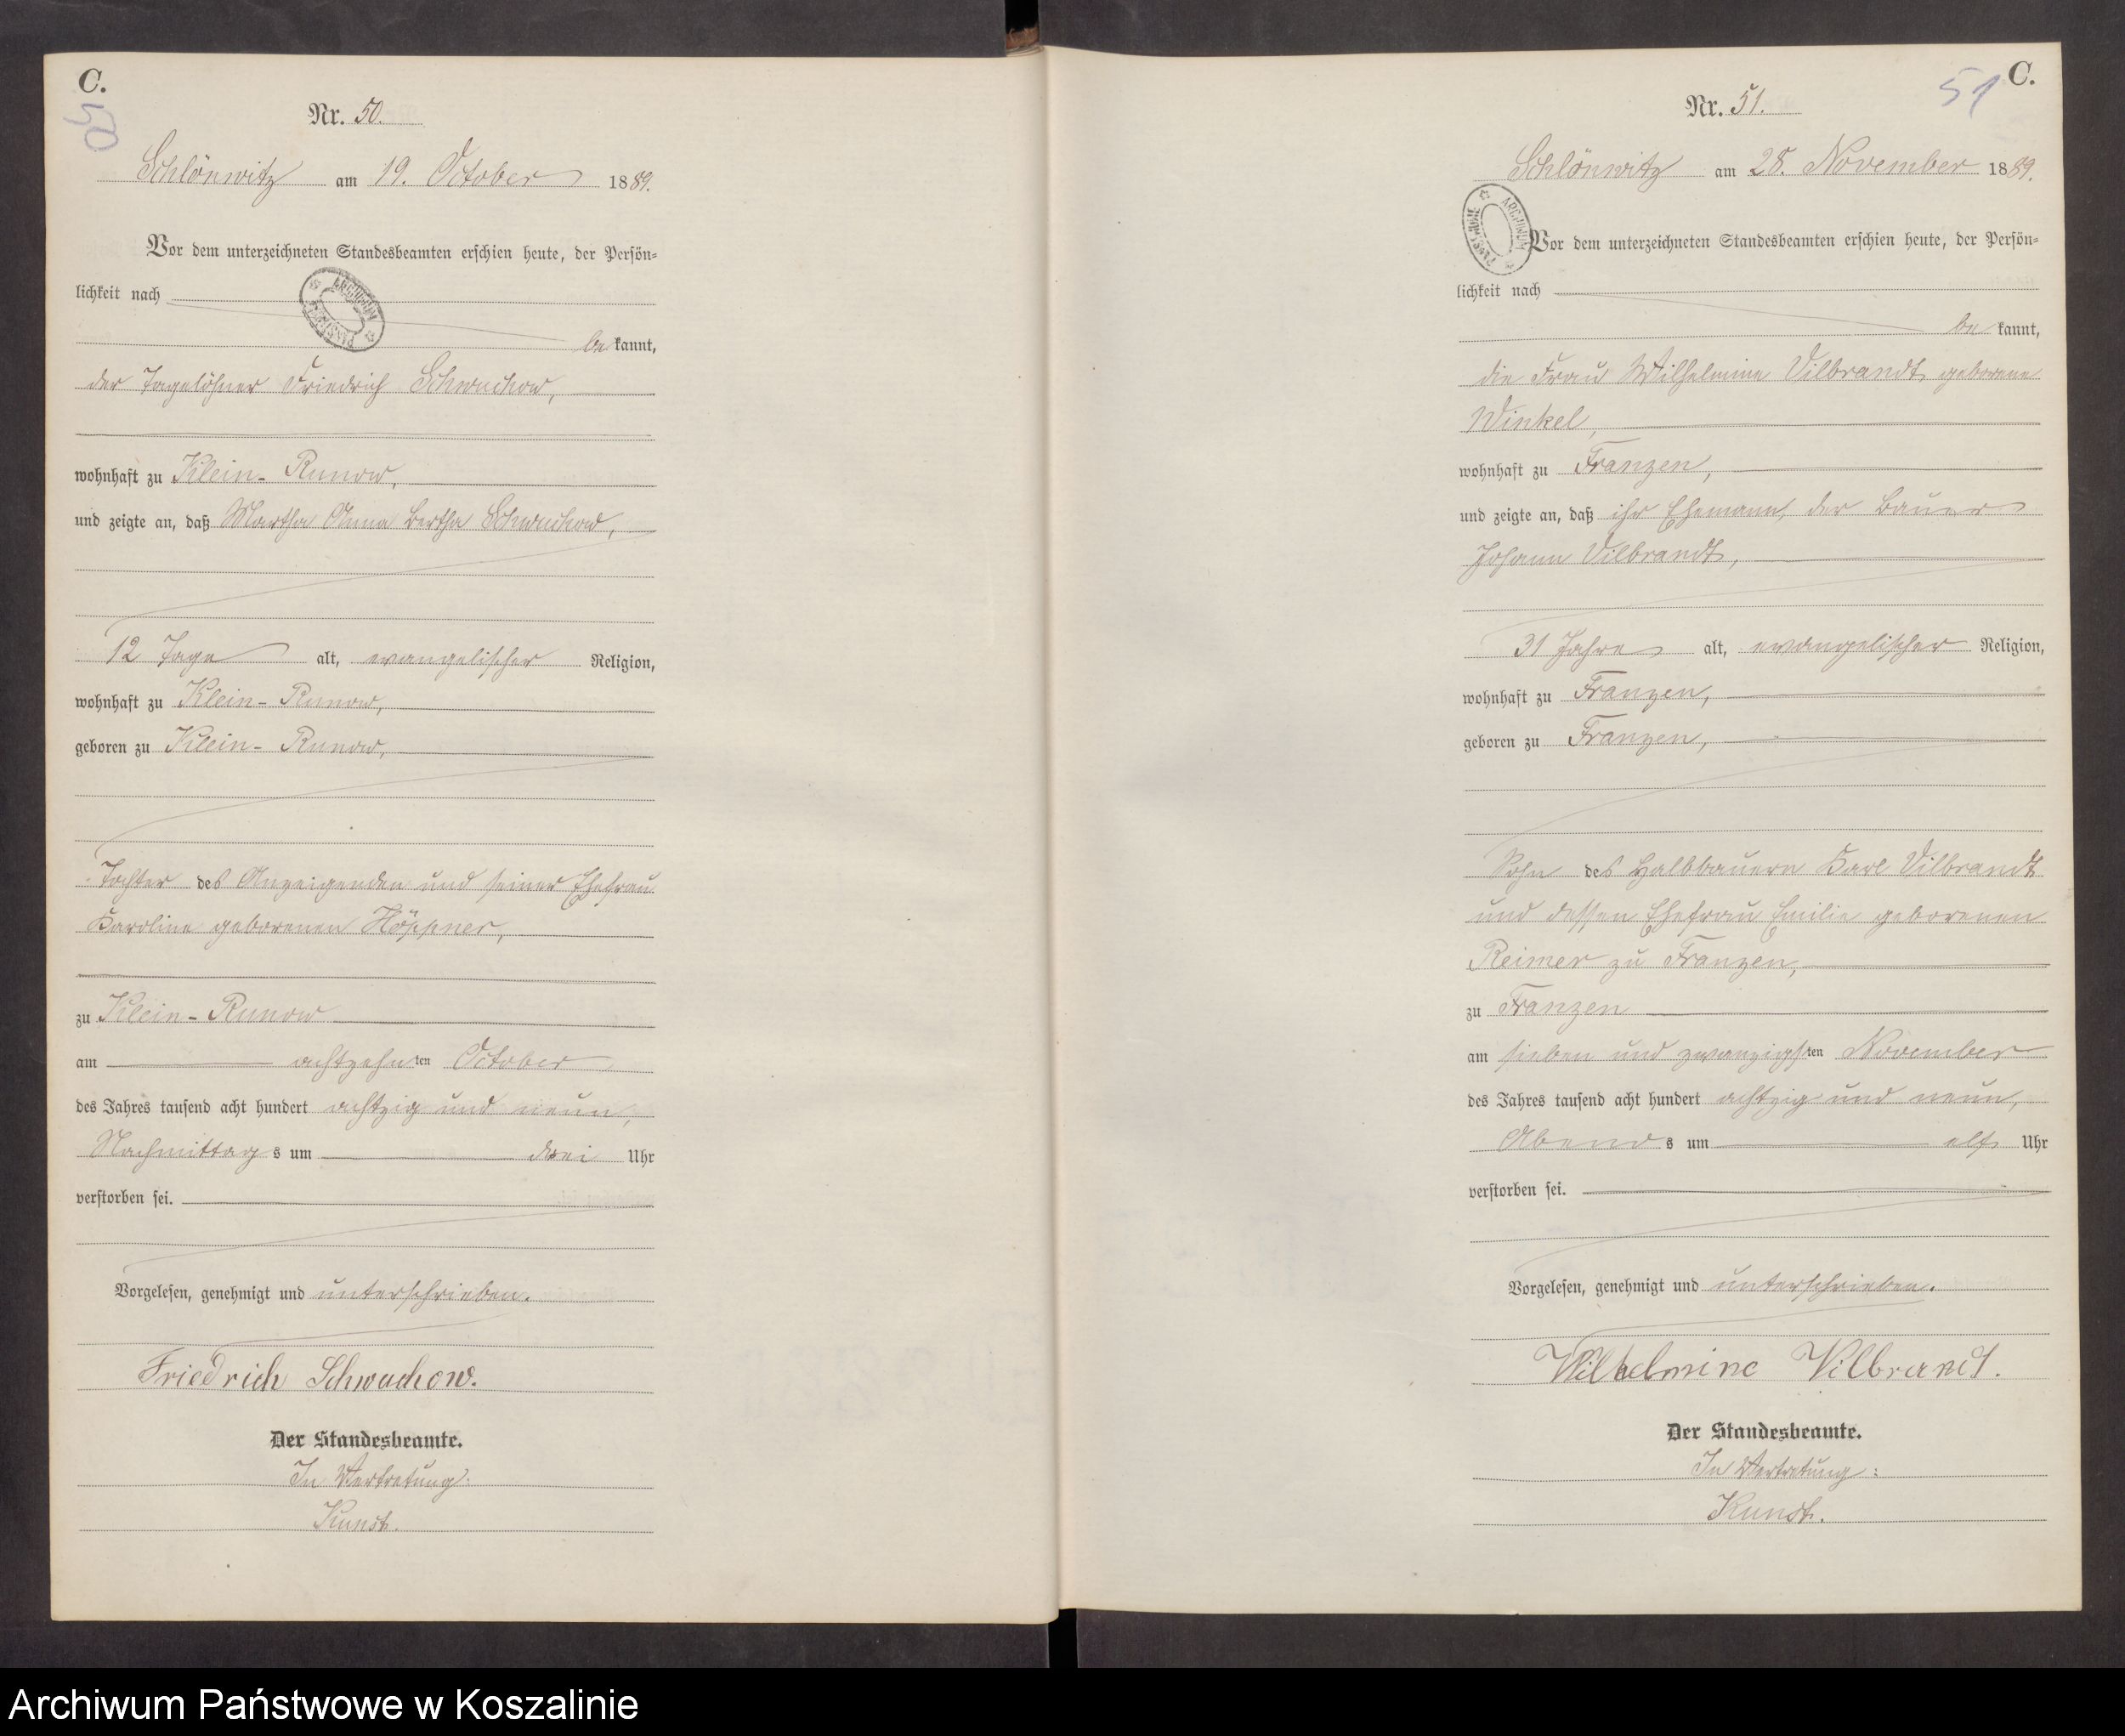 C.
50
Nr. 50.
Schlönwitz am 19. October 1889.
Vor dem unterzeichneten Standesbeamten erschien heute, der Persön-
lichkeit nach
bekannt,
der Tagelöhner Friedrich Schwuchow,
wohnhaft zu Klein-Runow,
und zeigte an, daß Martha Anna Bertha Schwuchow,
12 Tage alt, evangelischer Religion,
wohnhaft zu Klein-Runow,
geboren zu Klein-Runow,
Tochter des Anzeigenden und seiner Ehefrau
Karoline geborenen Höppner,
zu Klein-Runow
am achtzehnten October
des Jahres tausend acht hundert achtzig und neun,
Nachmittags um drei Uhr
verstorben sei.
Vorgelesen, genehmigt und unterschrieben.
Friedrich Schwuchow.
Der Standesbeamte.
In Vertretung:
Kunst.
C.
51
Nr. 51.
Schlönwitz am 28. November 1889.
ARCHIWUM
Vor dem unterzeichneten Standesbeamten erschien heute, der Persön-
lichkeit nach
bekannt,
die Frau Wilhelmine Vilbrandt geborene
Winkel,
wohnhaft zu Franzen,
und zeigte an, daß ihr Ehemann, der Bauer
Johann Vilbrandt,
31 Jahre alt, evangelischer Religion,
wohnhaft zu Franzen,
geboren zu Franzen,
Sohn des Halbbauern Karl Vilbrandt
und dessen Ehefrau Emilie geborenen
Reimer zu Franzen,
zu Franzen
am sieben und zwanzigsten November
des Jahres tausend acht hundert achtzig und neun,
Abends um elf Uhr
verstorben sei.
Vorgelesen, genehmigt und unterschrieben.
Wilhelmine Vilbrandt.
Der Standesbeamte.
In Vertretung:
Kunst.
Archiwum Państwowe w Koszalinie